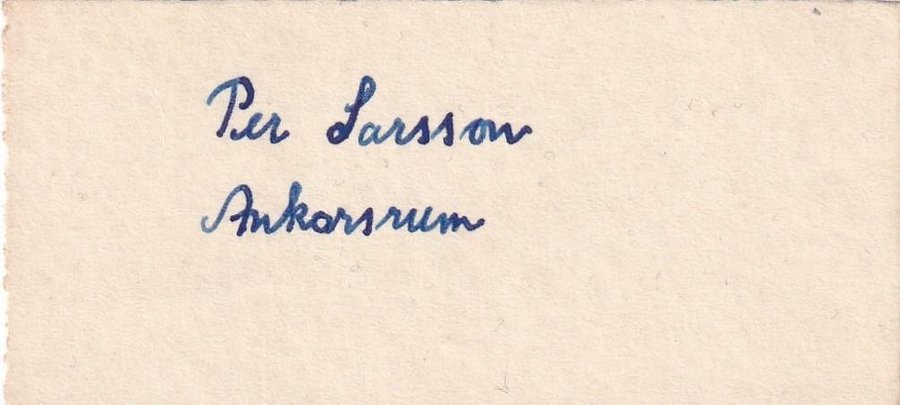 Per Larsson
Ankarsrum